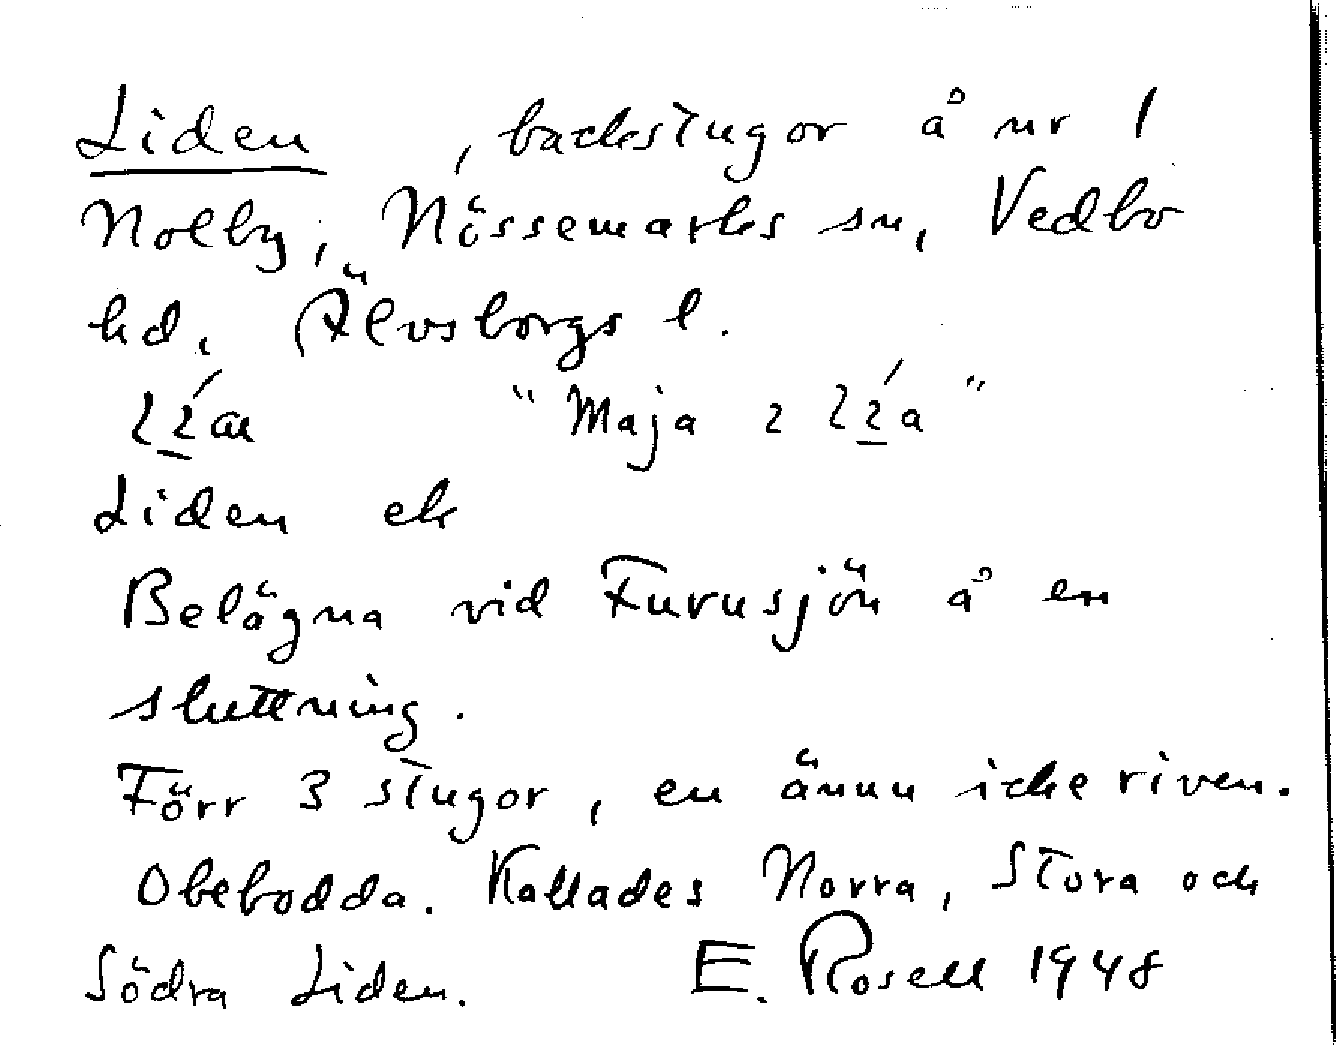 Liden, backstugor å nr 1
Nolby, Nössemarks sn, Vedbo
hd, Älvsborgs l.
"Maja
Liden ek
Belägna vid Furusjön å en
sluttning.
Förr 3 stugor, en ännu icke riven.
Obebodda. Kallades Norra, Stora och
Södra Liden. E. Rosell 1948